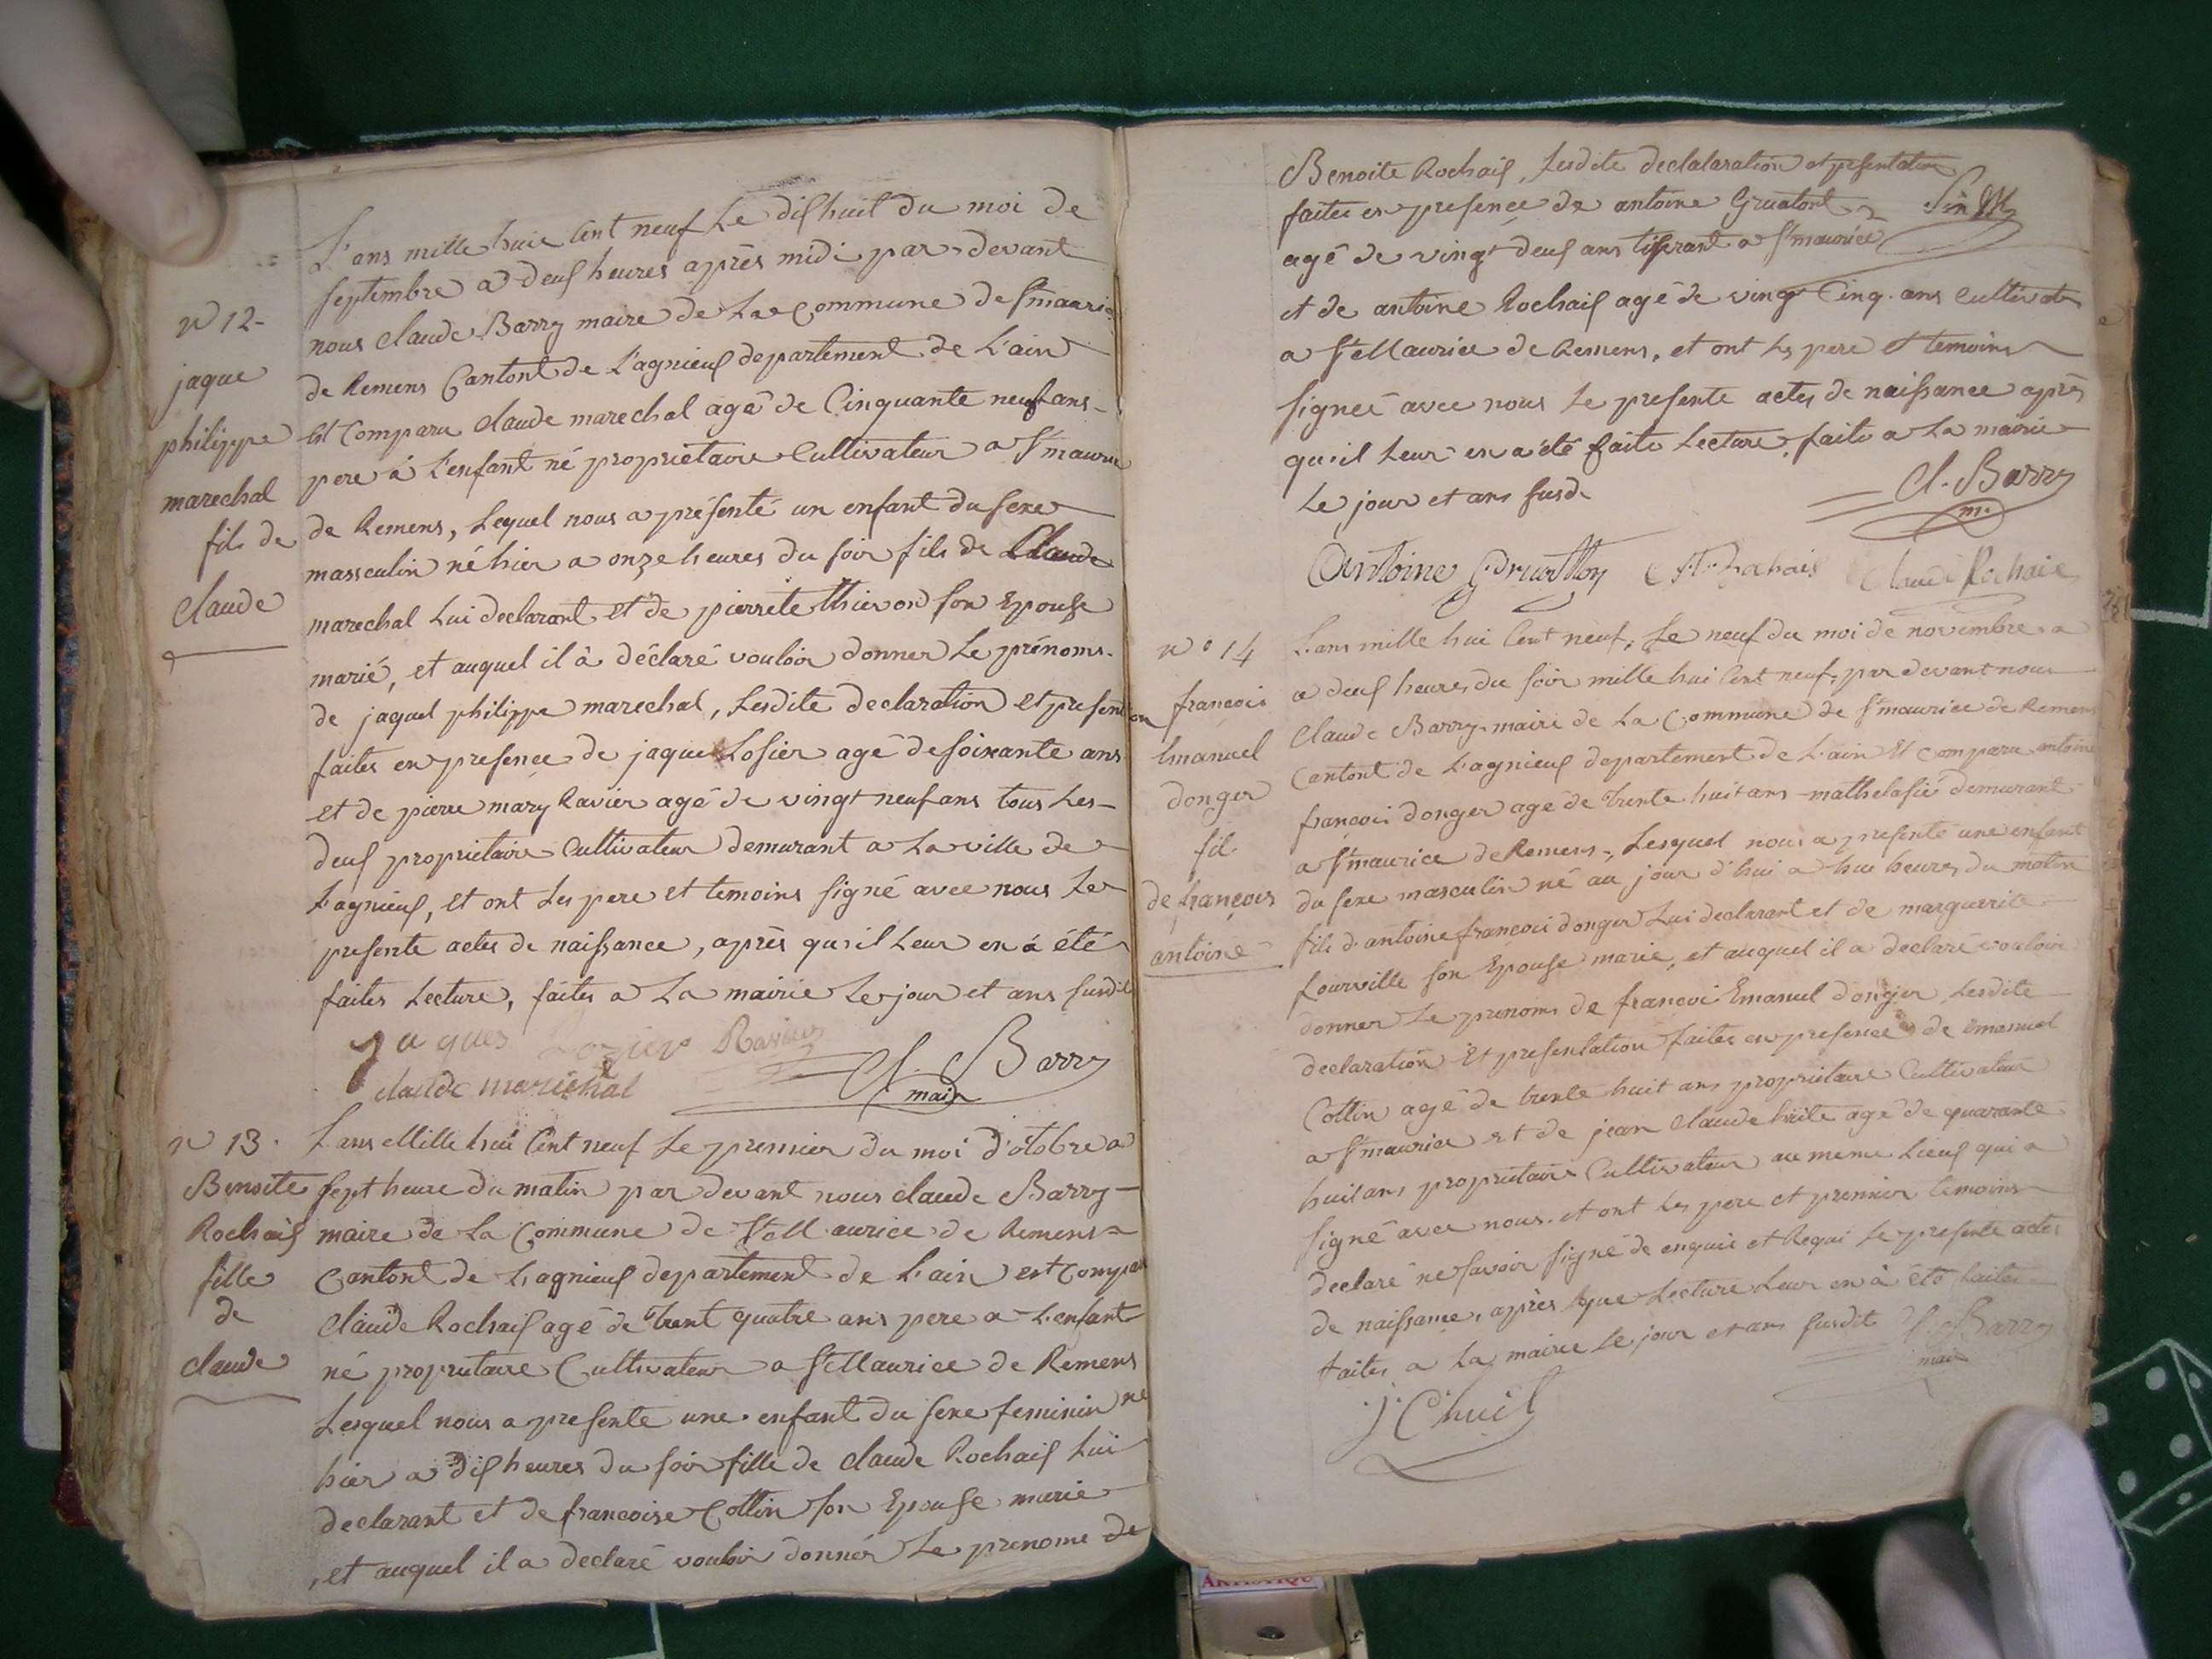 L'ans mille huit Cent neuf Le dishuit du moi de
septembre a deus heures après midi par devant
nous claude Barry maire de La Commune de St mauric
de Remens Cantont de L'agnieus departement de L'ain
Est Comparu claude marechal agé de Cinquante neuf ans
pere à L'enfant né proprietaire Cultivateur a St maurice
de Remens, Lequel nous a présenté un enfant du sexe
masseulin né hier a onze heures du soir fils de Claude
marechal Lui declarant et de pierrete thievon son Epouse
marié, et auquel il à déclaré vouloir donner Le prénoms
de jaquel philippe marechal, Lesdite declaration et presentation
faites en presence de jaque Losier agé de soixante ans
et de pierre mary Ravier agé de vingt neuf ans tous Les
deus proprietaire Cultivateur demurant a La ville de
Lagnieus, et ont Les pere et temoins signé avec nous Le
presente actes de naissance, après qu'il Leur en à été
faites Lecture, faites a La mairie Le jour et ans susdit
Jaques Lozier Ravier
claude marechal Cl. Barry
maire
n 12
jaque
philippe
marechal
fils de
claude
n 13.
Benoite
Rochais
fille
de
claude
L'ans Mille hui Cent neuf Le premier du moi d'otobre a
sept heure du matin par devant nous claude Barry
maire de La Commune de St Maurice de Remens
Cantont de Lagnieus departement de L'ain est Compar
claude Rochais agé de trent quatre ans pere a L'enfant
né proprietaire Cultivateur a St Maurice de Remens
Lesquel nous a presente une enfant du sexe feminin né
hier a dis heures du soir fille de claude Rochais Lui
declarant et de francoise Cottin son Epouse marie
, et auquel il a declaré vouloir donnér Le prenome de
Benoite Rochais, Lesdite declalaration et presentation
faites en presence de antoine Gruatont
agé de vingt deus ans tiserant a St maurice
et de antoine Rochais agé de vingt Cinq. ans Cultivate
a St Maurice de Remens, et ont Les pere et temoins
signeé avec nous Le presente actes de naissance après
qu'il Leur en a été faite Lecture, faite a La mairie
Le jour et ans susd. Cl. Barry
m.
Antoine Gruatton Rochais Claude Rochais
n° 14
francois
Emanuel
donger
fil.
de françois
antoine
L'ans mille hui Cent neuf, Le neuf du moi de novembre a
a deus heures du soir mille hui Cent neuf, par devant nous
Claude Barry maire de La Commune de St maurice de Remens
Cantont de L'agnieus departement de L'ain Et Comparu antoine
francois donger agé de trente huit ans mathelasié demurant
a St maurice de Remens, Lesquel nous a presenté une enfant
du sexe masculin né au jour d'hui a hui heures du matin
fils d'antoine francois donger Lui declarant et de marguerite
fourville son Epouse marié, et auquel il a declaré vouloir
donner Le prenoms de francoi Emanuel donger Lesdite
declaration Et presentation faites en presence de Emanuel
Cottin agé de trente huit ans proprietaire Cultivateur
a St maurice et de jean Claude huite agé de quarante
huit ans proprietaire Cultivateur au meme Lieus qui a
signé avec nous. et ont Les pere et premier temoins
declaré ne savoir signé de enquis et Requi Le presente actes
de naissance, après que Lecture Leur en à été faites
faites a La mairie Le jour et ans susdit Cl. Barry
maire